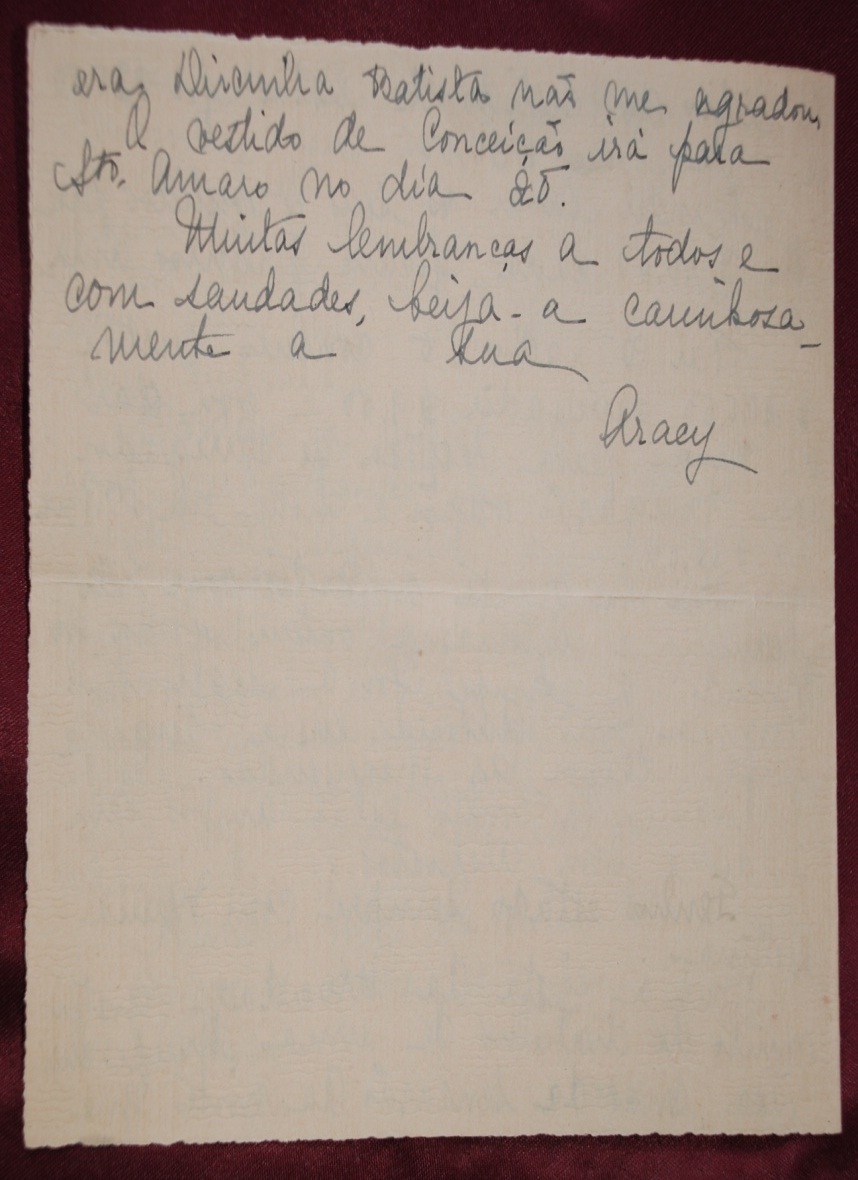 era, Dircinha Batista não me agradou,
O vestido de Conceição irá para
Sto. Amaro no dia
Muitas lembranças a todos e
com saudades, beija-a carinhosa-
mente a sua
Aracy